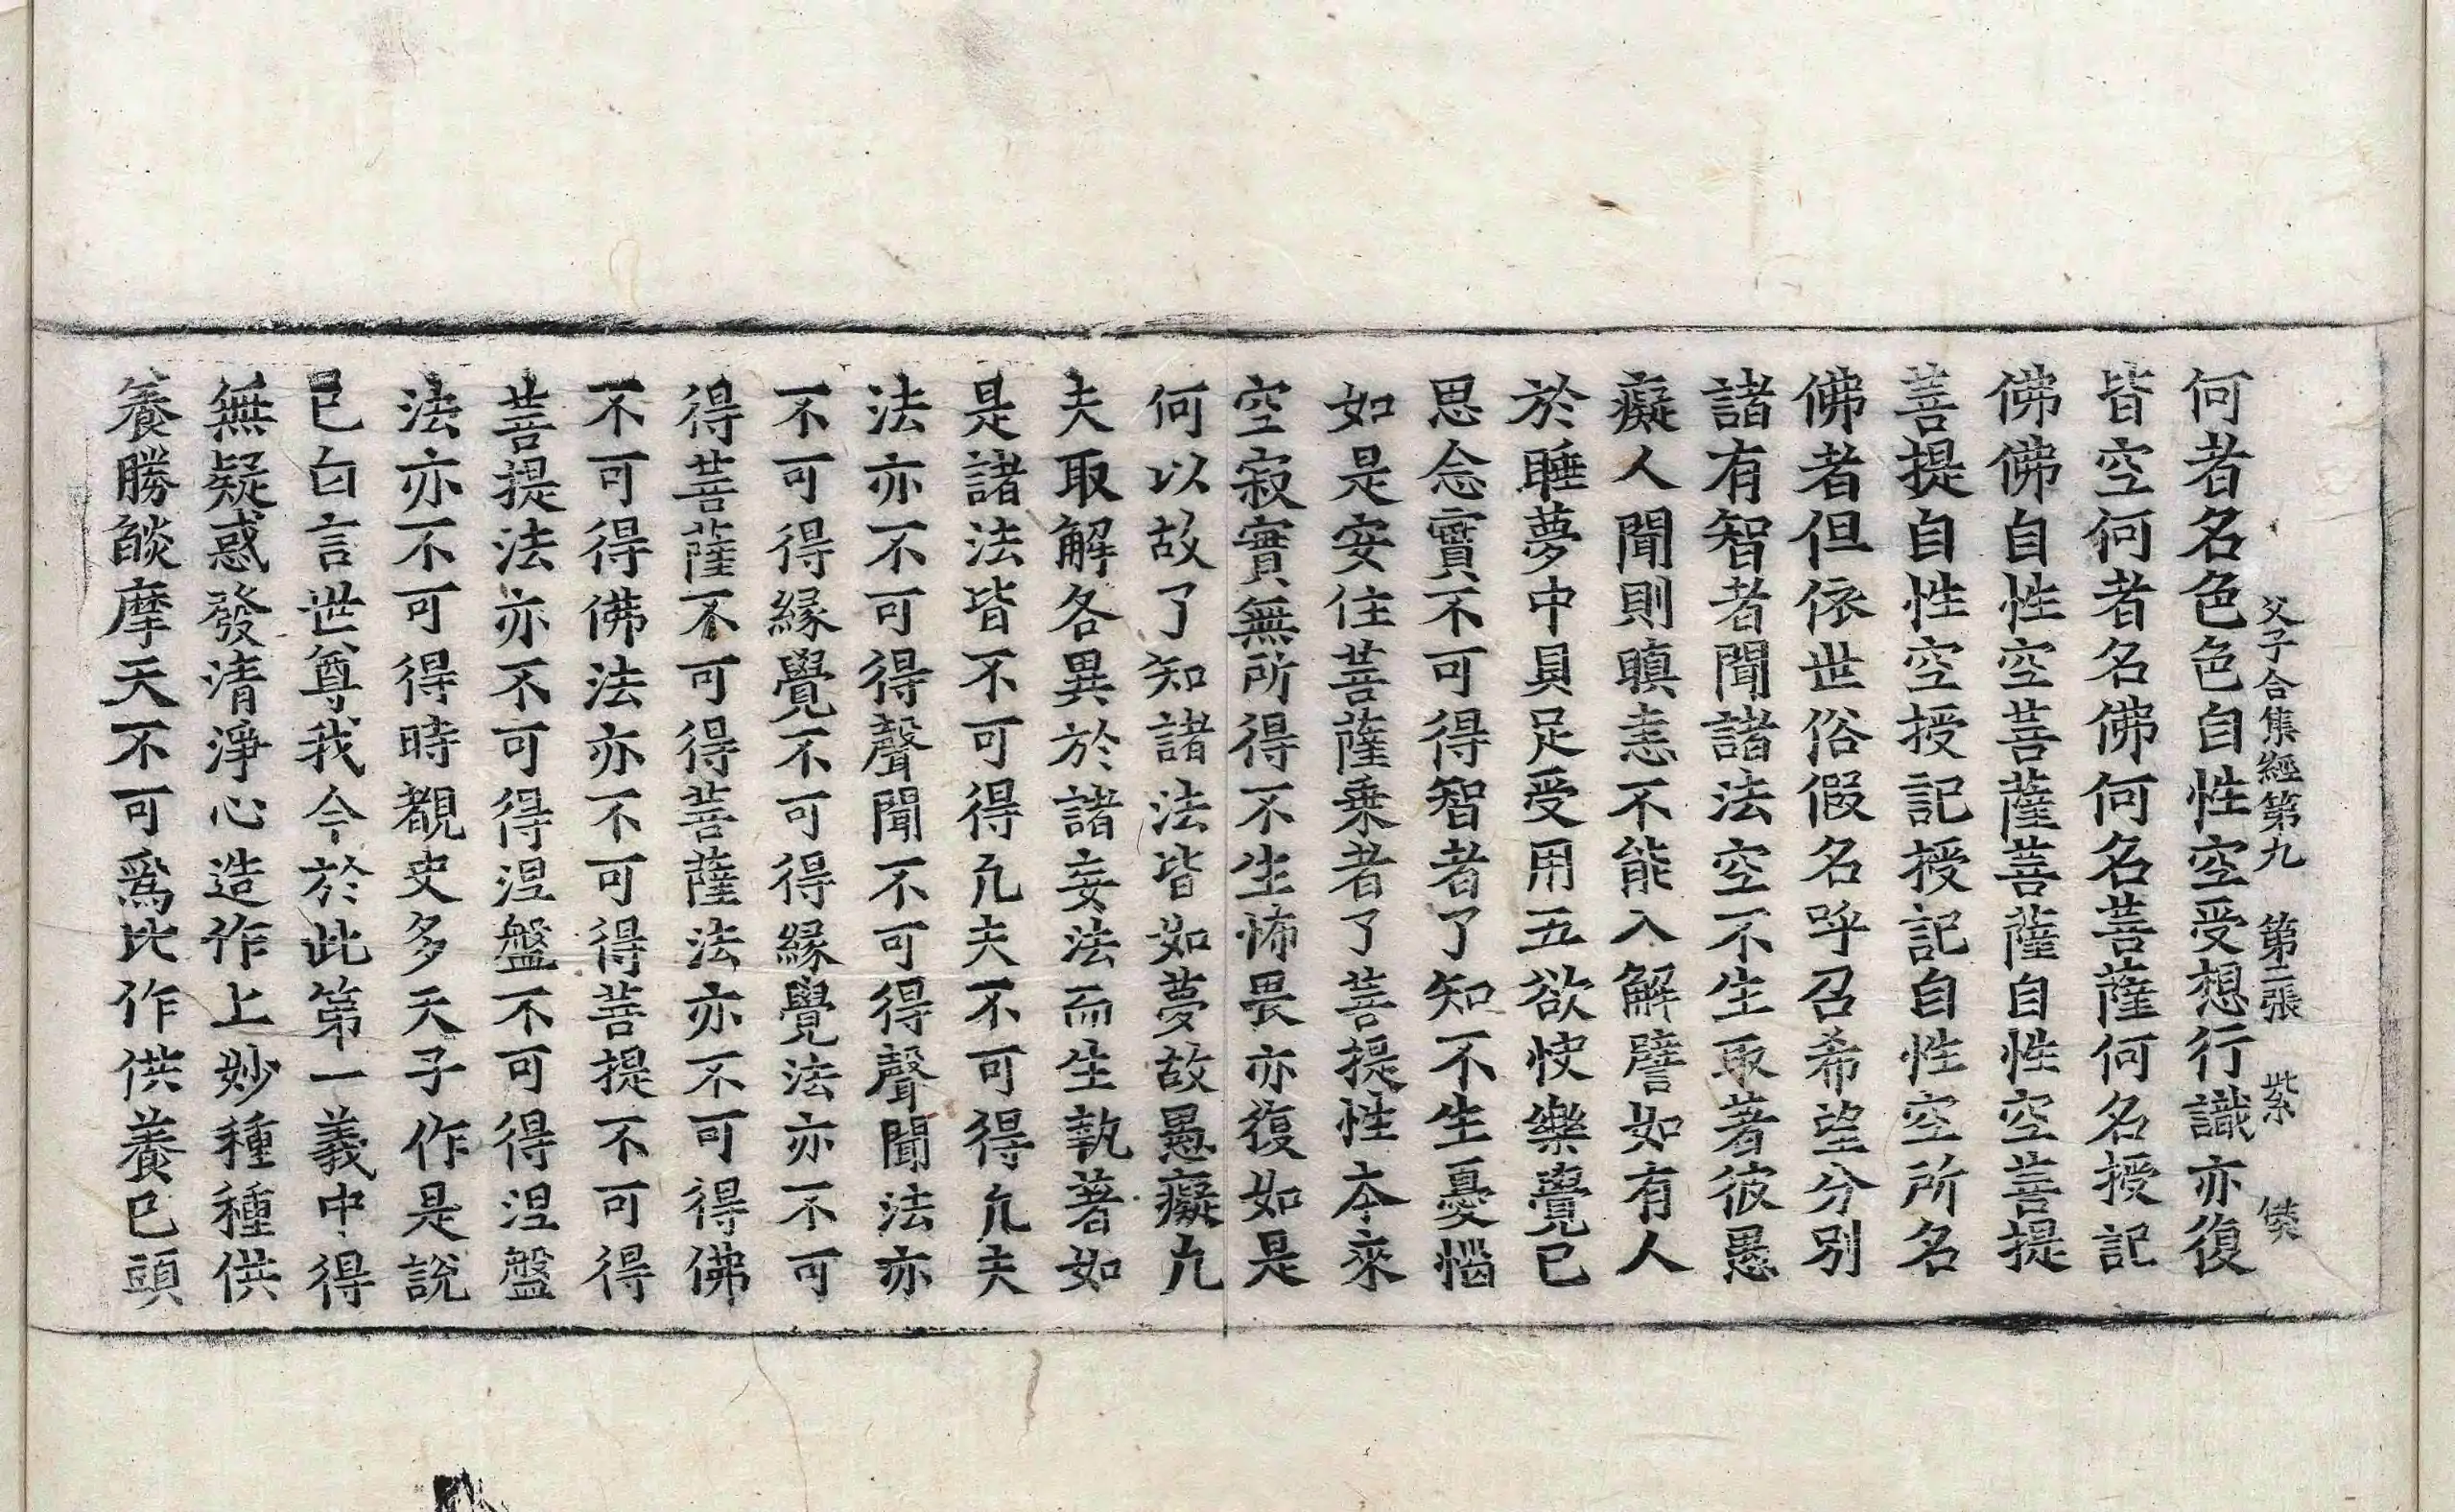 父子合集經第九　第二張　紫　㑩
何者名色色自性空受想行識亦復
皆空何者名佛何名菩薩何名授記
佛佛自性空菩薩菩薩自性空菩提
菩提自性空授記授記自性空所名
佛者但依世俗假名呼召希望分別
諸有智者聞諸法空不生取著彼愚
癡人聞則瞋恚不能入解譬如有人
於睡夢中具足受用五欲快樂覺已
思念實不可得智者了知不生憂惱
如是安住菩薩乘者了菩提性本來
空寂實無所得不生怖畏亦復如是
何以故了知諸法皆如夢故愚癡凡
夫取解各異於諸妄法而生執著如
是諸法皆不可得凡夫不可得凡夫
法亦不可得聲聞不可得聲聞法亦
不可得緣覺不可得緣覺法亦不可
得菩薩不可得菩薩法亦不可得佛
不可得佛法亦不可得菩提不可得
菩提法亦不可得涅盤不可得涅盤
法亦不可得時覩史多天子作是說
已白言世尊我今於此第一義中得
無疑惑發清淨心造作上妙種種供
養勝餤摩天不可爲比作供養已頭